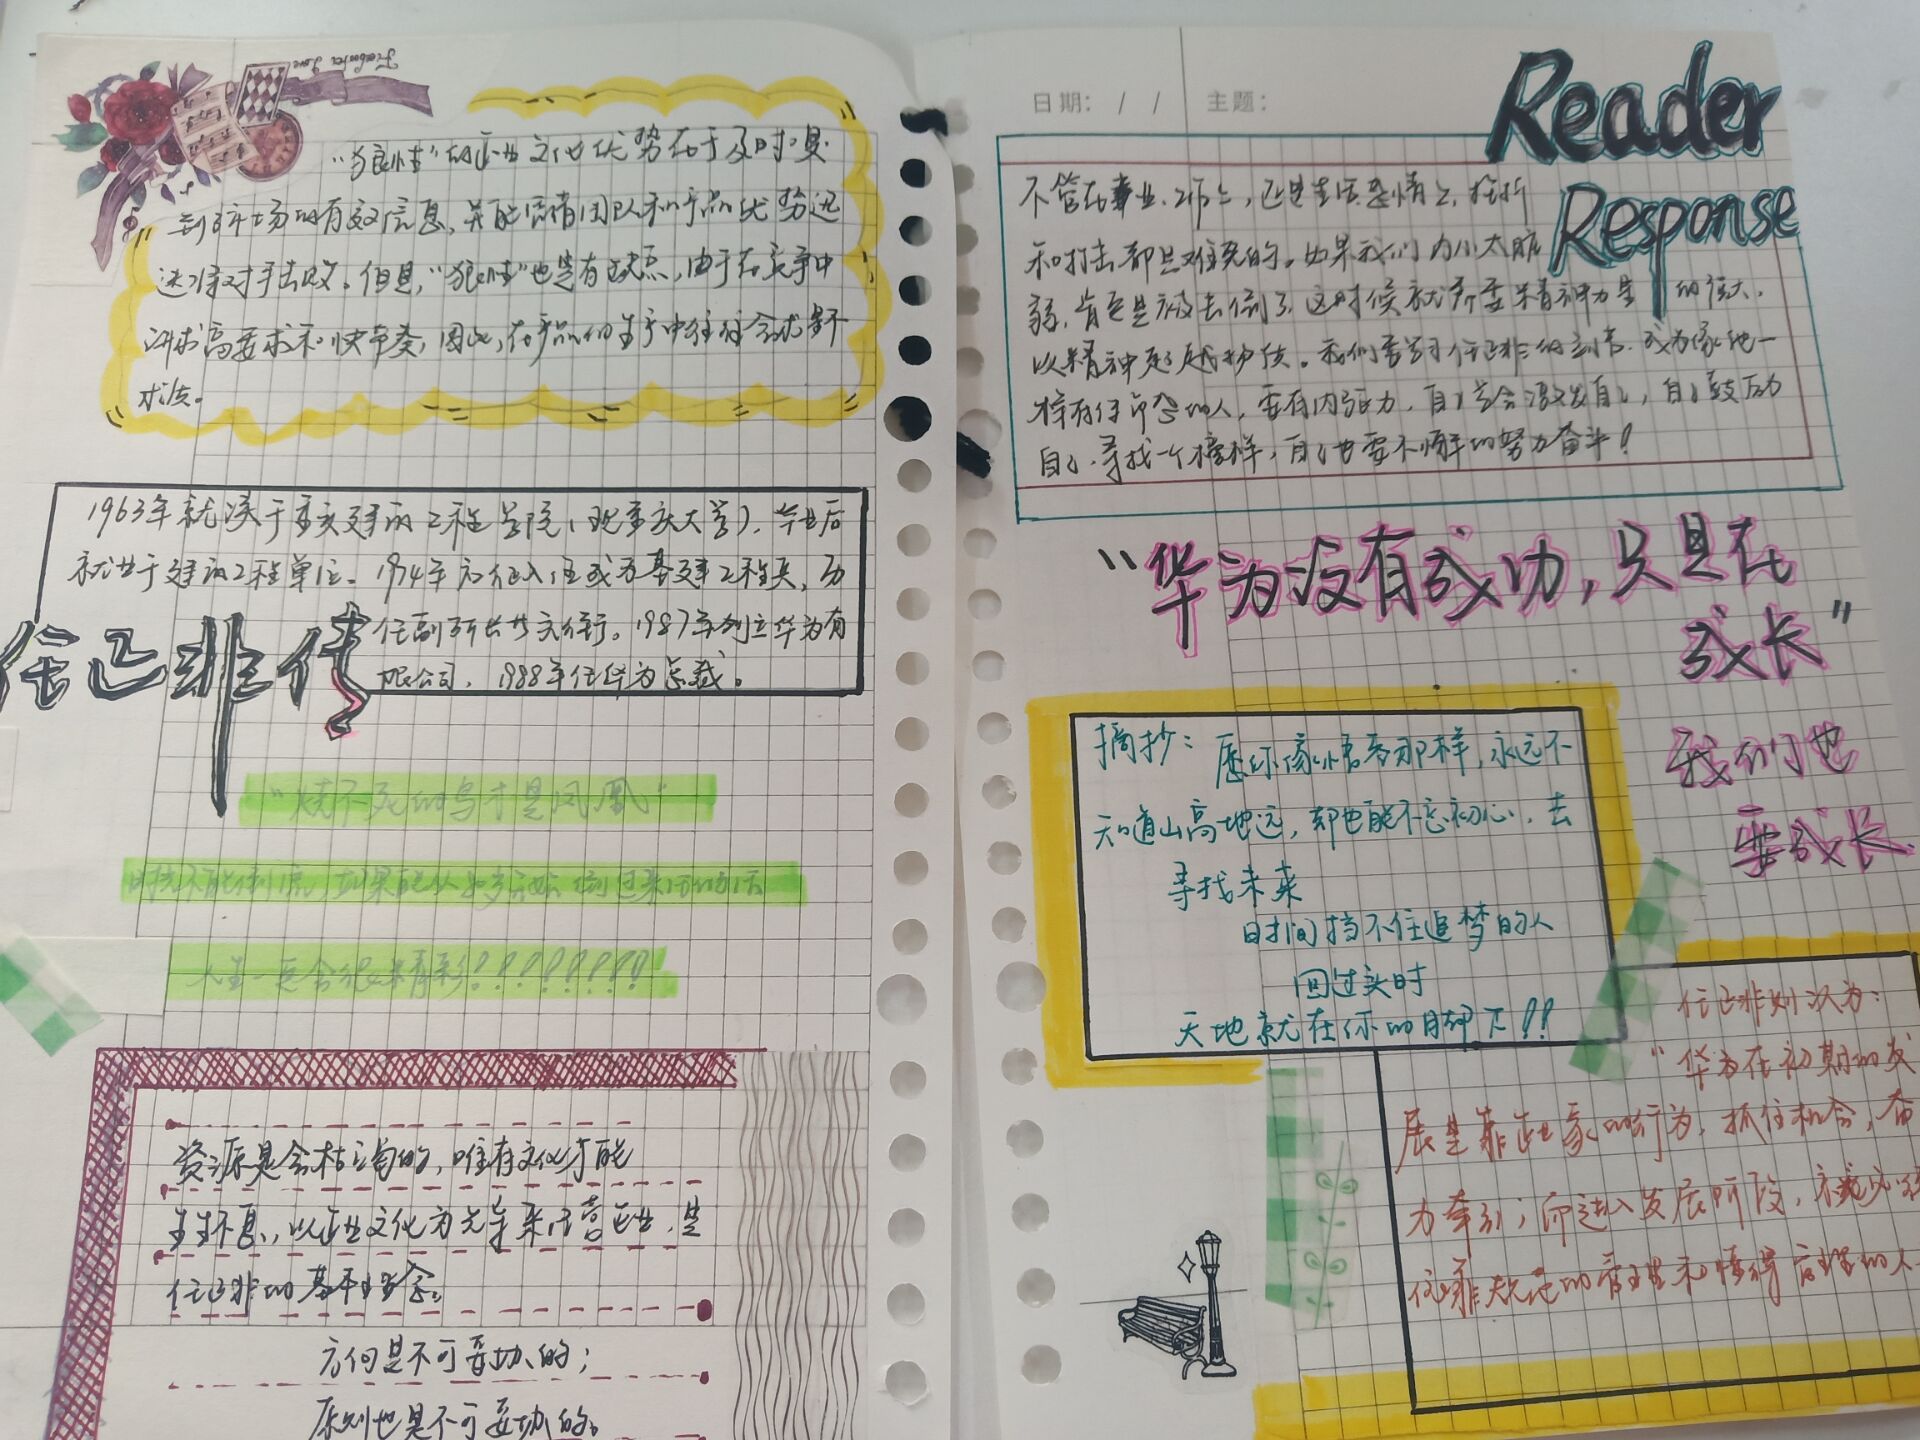 "狼性"的企业文化优势在于及时嗅
到市场的有效信息,并能凭借团队和产品优势迅
速将对手击败。但是,"狼性"也是有缺点,由于在竞争中
讲求高要求和快节奏,因此,在产品的生产中往往会求量不
求法。
1963年就读于重庆建筑工程学院(现重庆大学),毕业后
就业于建筑工程单位。1974年应征入伍成为基建工程兵,历
任副所长 。1987年创立华为有
限公司,1988年任华为总裁。
任正非传
"烧不死的鸟才是凤凰"
时光不能倒流,如果能从 岁开始倒过来活的话
人生一定会很精彩!!!!!!!!!
资源是会枯竭的,唯有文化才能
生生不息,以企业文化为先导来经营企业,是
任正非的基本理念。
方向是不可妥协的;
原则也是不可妥协的。
日期: / / 主题:
Reader
Response
不管在事业、工作上,还是生活感情上,挫折
和打击都是难免的。如果我们内心太脆
弱,肯定是被击倒了,这时候就需要精神力量的强大,
以精神超越物质。我们要学习任正非的 ,成为像他一
样有使命感的人,要有内驱力,自己学会激发自己,自己鼓励
自己,寻找一个榜样,自己也要不懈的努力奋斗!
"华为没有成功,只是在
成长"
我们也
要成长.
摘抄:愿你像 那样,永远不
知道山高地远,却也能不忘初心,去
寻找未来
时间挡不住追梦的人
回过头时
天地就在你的脚下!!
任正非则认为:
"华为在初期的发
展是靠企业家的行为,抓住机会,奋
力牵引;而进入发展阶段,就必须
依靠规范的管理和懂得管理的人